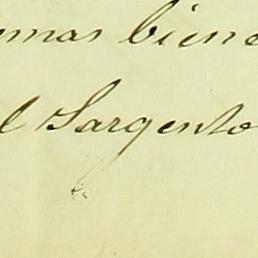 mas biene
l Sargento